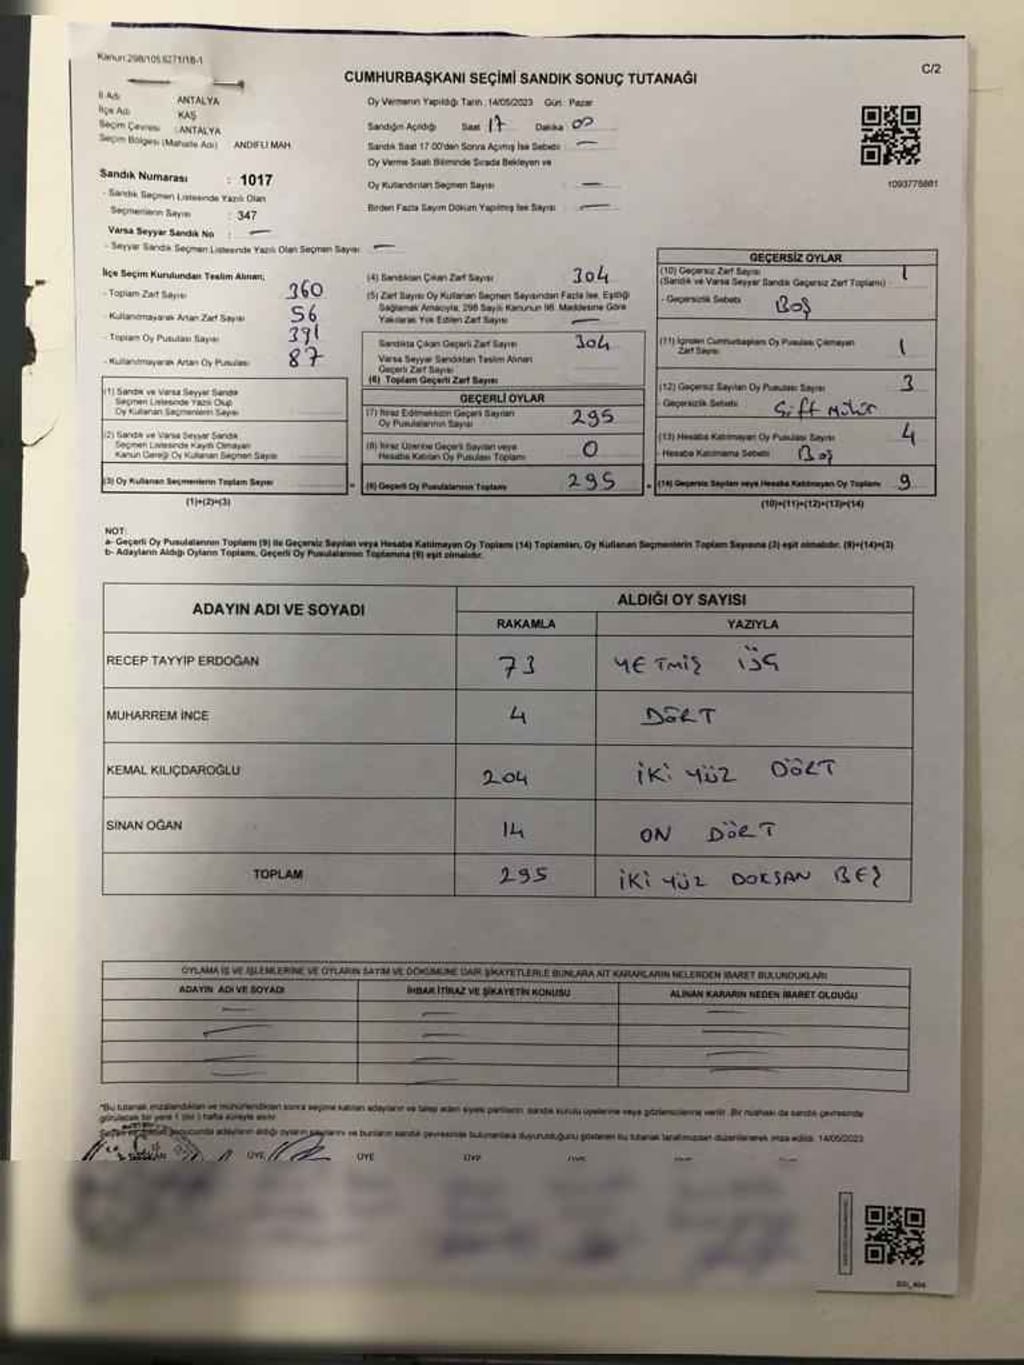 Kanun:298/105,6271/18-1
C/2
CUMHURBAŞKANI SEÇİMİ SANDIK SONUÇ TUTANAĞI
İl Adı ANTALYA
İlçe Adı KAŞ
Seçim Çevresi : ANTALYA
Seçim Bölgesi (Mahalle Adı) ANDIFLI MAH.
Sandık Numarası : 1017
- Sandık Seçmen Listesinde Yazılı Olan
Seçmenlerin Sayısı : 347
Varsa Seyyar Sandık No : —
- Seyyar Sandık Seçmen Listesinde Yazılı Olan Seçmen Sayısı —
Oy Vermenin Yapıldığı Tarih : 14/05/2023 Gün : Pazar
Sandığın Açıldığı Saat 17 Dakika 00
Sandık Saat 17:00'den Sonra Açılmış İse Sebebi —
Oy Verme Saati Bitiminde Sırada Bekleyen ve
Oy Kullandırılan Seçmen Sayısı : —
Birden Fazla Sayım Döküm Yapılmış İse Sayısı : —
1093775881
İlçe Seçim Kurulundan Teslim Alınan;
- Toplam Zarf Sayısı 360
- Kullanılmayarak Artan Zarf Sayısı 56
- Toplam Oy Pusulası Sayısı 391
- Kullanılmayarak Artan Oy Pusulası 87
(1) Sandık ve Varsa Seyyar Sandık
Seçmen Listesinde Yazılı Olup
Oy Kullanan Seçmenlerin Sayısı
(2) Sandık ve Varsa Seyyar Sandık
Seçmen Listesinde Kayıtlı Olmayan
Kanun Gereği Oy Kullanan Seçmen Sayısı
(3) Oy Kullanan Seçmenlerin Toplam Sayısı
(1)+(2)=(3)
(4) Sandıktan Çıkan Zarf Sayısı 304
(5) Zarf Sayısı Oy Kullanan Seçmen Sayısından Fazla İse, Eşitliği
Sağlamak Amacıyla, 298 Sayılı Kanunun 98. Maddesine Göre
Yakılarak Yok Edilen Zarf Sayısı —
Sandıkta Çıkan Geçerli Zarf Sayısı 304
Varsa Seyyar Sandıktan Teslim Alınan
Geçerli Zarf Sayısı
(6) Toplam Geçerli Zarf Sayısı
GEÇERLİ OYLAR
(7) İtiraz Edilmeksizin Geçerli Sayılan
Oy Pusulalarının Sayısı 295
(8) İtiraz Üzerine Geçerli Sayılan veya
Hesaba Katılan Oy Pusulası Toplamı 0
(9) Geçerli Oy Pusulalarının Toplamı 295
GEÇERSİZ OYLAR
(10) Geçersiz Zarf Sayısı 1
(Sandık ve Varsa Seyyar Sandık Geçersiz Zarf Toplamı)
- Geçersizlik Sebebi : Boş
(11) İçinden Cumhurbaşkanı Oy Pusulası Çıkmayan
Zarf Sayısı 1
(12) Geçersiz Sayılan Oy Pusulası Sayısı 3
- Geçersizlik Sebebi Çift Mühür
(13) Hesaba Katılmayan Oy Pusulası Sayısı 4
- Hesaba Katılmama Sebebi : Boş
(14) Geçersiz Sayılan veya Hesaba Katılmayan Oy Toplamı 9
(10)+(11)+(12)+(13)=(14)
NOT:
a- Geçerli Oy Pusulalarının Toplamı (9) ile Geçersiz Sayılan veya Hesaba Katılmayan Oy Toplamı (14) Toplamları, Oy Kullanan Seçmenlerin Toplam Sayısına (3) eşit olmalıdır. (9)+(14)=(3)
b- Adayların Aldığı Oyların Toplamı, Geçerli Oy Pusulalarının Toplamına (9) eşit olmalıdır.
ADAYIN ADI VE SOYADI
ALDIĞI OY SAYISI
RAKAMLA YAZIYLA
RECEP TAYYİP ERDOĞAN 73 YETMİŞ ÜÇ
MUHARREM İNCE 4 DÖRT
KEMAL KILIÇDAROĞLU 204 İKİ YÜZ DÖRT
SİNAN OĞAN 14 ON DÖRT
TOPLAM 295 İKİ YÜZ DOKSAN BEŞ
OYLAMA İŞ VE İŞLEMLERİNE VE OYLARIN SAYIM VE DÖKÜMÜNE DAİR ŞİKAYETLERLE BUNLARA AİT KARARLARIN NELERDEN İBARET BULUNDUKLARI
ADAYIN ADI VE SOYADI İHBAR İTİRAZ VE ŞİKAYETİN KONUSU ALINAN KARARIN NEDEN İBARET OLDUĞU
*Bu tutanak imzalandıktan ve mühürlendikten sonra seçime katılan adayların ve talep eden siyasi partilerin sandık kurulu üyelerine veya gözlemcilerine verilir. Bir nüshası da sandık çevresinde
görülecek bir yere 1 (bir) hafta süreyle asılır.
sonucunda adayların aldığı oyların sayılarını ve bunların sandık çevresinde bulunanlara duyurulduğunu gösteren bu tutanak tarafımızdan düzenlenerek imza edildi. 14/05/2023
ÜYE ÜYE ÜYE